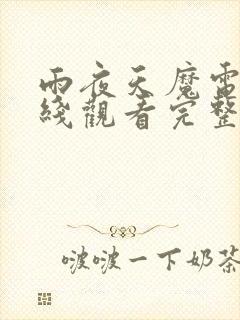 雨夜天魔電
綫觀看完整
啵啵一下奶茶